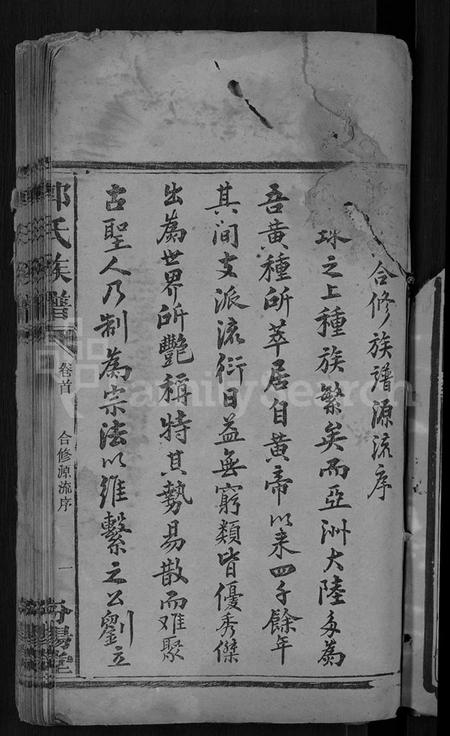 合修族譜源流序
球之上種族繁矣而亞洲大陸多為
吾黃種所萃居自黃帝以來四千餘年
其间支派流衍日益無窮類皆優秀傑
出為世界所艷稱特其勢易散而难聚
古聖人乃制為宗法以維繫之公劉立
氏族譜
卷首
合修源流序
一
堂
FamilySearch